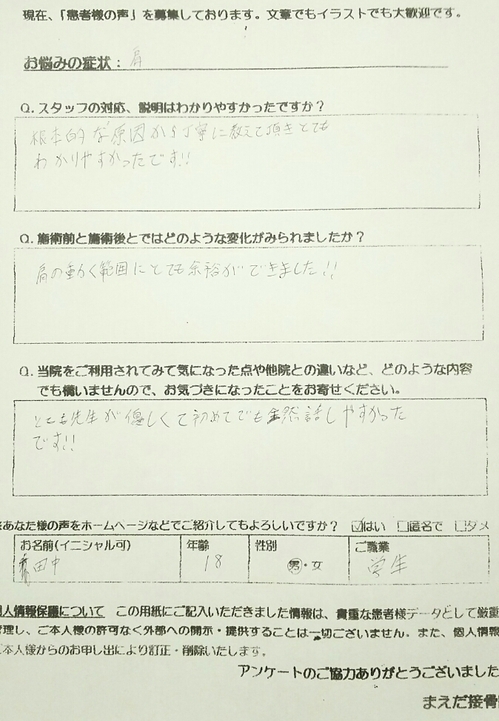 現在、「患者様の声」を募集しております。文章でもイラストでも大歓迎です。
お悩みの症状：肩
Q. スタッフの対応、説明はわかりやすかったですか？
根本的な原因から丁寧に教えて頂きとても
わかりやすかったです!!
Q. 施術前と施術後とではどのような変化がみられましたか？
肩の動く範囲にとても余裕ができました!!
Q. 当院をご利用されてみて気になった点や他院との違いなど、どのような内容
でも構いませんので、お気づきになったことをお寄せください。
とても先生が優しくて初めてでも全然話しやすかった
です!!
※あなた様の声をホームページなどでご紹介してもよろしいですか？ ☑はい □匿名で □ダメ
お名前(イニシャル可) 年齢 性別 ご職業
田中 18 男・女 学生
個人情報保護について この用紙にご記入いただきました情報は、貴重な患者様データとして厳重
管理し、ご本人様の許可なく外部への開示・提供することは一切ございません。また、個人情報
ご本人様からのお申し出により訂正・削除いたします。
アンケートのご協力ありがとうございました
まえだ接骨